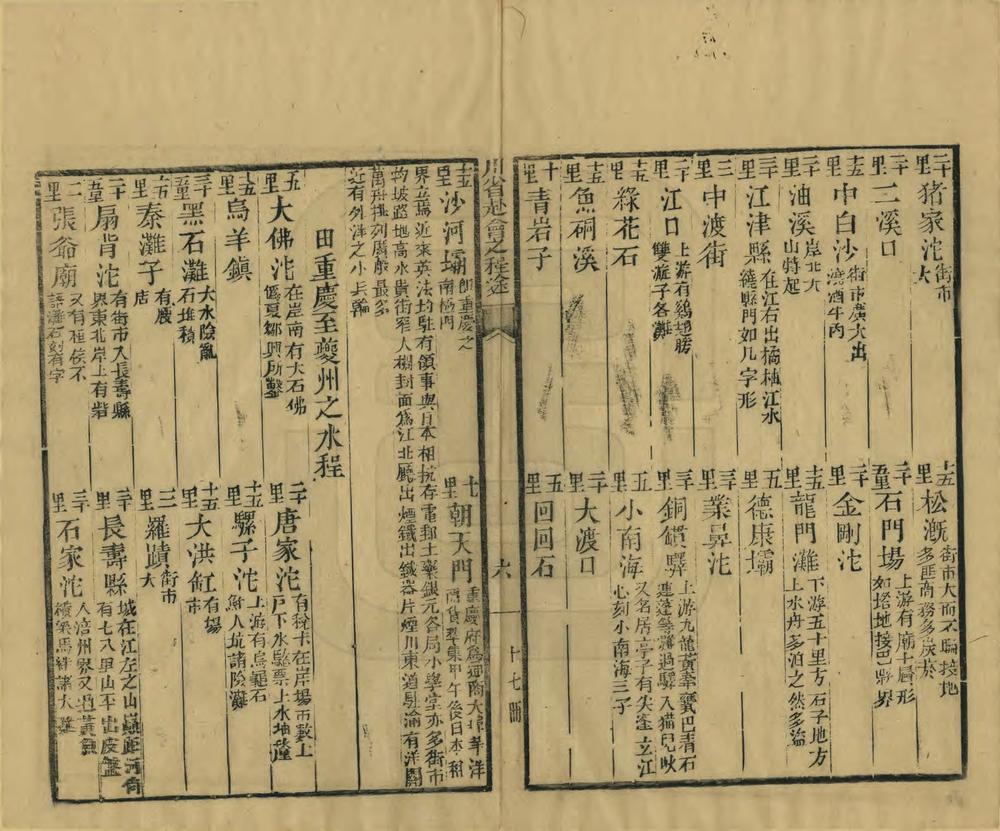 二十里 豬家沱 街市大
十五里 松溉 街市大而不臨接地多匪商務多炭茶
二十里 二溪口
二十五里 石門場 上游有廟十層形如塔地接巴縣界
十五里 中白沙 街市廣大出澆酒牛肉
二十里 金剛沱
三十里 油溪 岸北大山特起
十五里 龍門灘 下游五十里方石子地方上水舟多泊之然多盜
三十里 江津縣 在江右出橘柚江水繞縣門如几字形
五里 德康壩
三里 中渡街
三十里 業昇沱
二十里 江口 上游有鷄翅膀雙漩子各灘
三十里 銅鑵驛 上游九龍黃奉寶巴青石連蓬等灘過驛入猫兒峽
十五里 綠花石
五里 小南海 又名居士亭子有尖峯立江心刻小南海三子
十五里 魚硐溪
三十里 大渡口
十里 青岩子
五里 回回石
川省赴會之程途 六 十七冊
十五里 沙河壩 即重慶之南極門
七里 朝天門 重慶府為通商大埠華洋商貨萃集甲午後日本租
界立焉近來英法均駐有領事與日本相抗存電郵土藥銀元各局小學堂亦多街市
均坡路地高水貴街窄人稠封面為江北廳出煙鐵出鐵器片煙川東道駐渝有洋關
萬舟排列廣船最多
近有外洋之小兵輪
由重慶至夔州之水程
五里 大佛沱 在岸南有大石佛偽夏鄒興所鑿
二十里 唐家沱 有稅卡在岸場市數上戶下水驗票上水抽釐
十五里 烏羊鎮
十五里 騾子沱 上游有烏龜石鮓人坑諸險灘
三十里 黑石灘 大水險亂石堆積
十五里 大洪缸 有場市
十五里 秦灘子 有廠店
三里 羅蹟 街市大
二十五里 扇背沱 有街市入長壽縣界東北岸上有岩
二十里 長壽縣 城在江左之山巔距河街有七八里山平出皮盤
二里 張爺廟 又有桓侯不語灘石刻有字
三十里 石家沱 入涪州界又過黃魚橫梁馬絆諸大灘